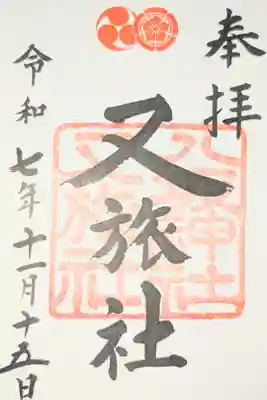 奉拝
又旅社
令和七年十一月十五日